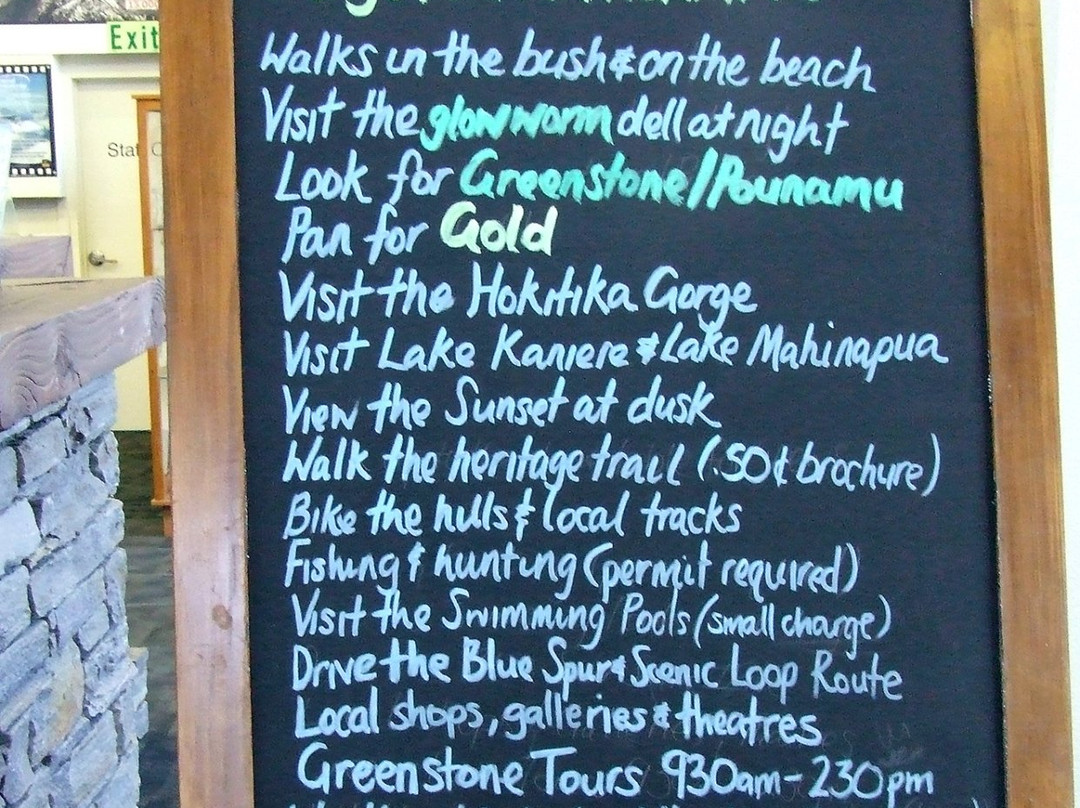 Exit
Staff
Walks in the bush & on the beach
Visit the glowworm dell at night
Look for Greenstone//Pounamu
Pan for Gold
Visit the Hokitika Gorge
Visit Lake Kaniere & Lake Mahinapua
View the Sunset at dusk
Walk the heritage trail (.50¢ brochure)
Bike the hills & local tracks
Fishing & hunting (permit required)
Visit the Swimming Pools (small charge)
Drive the Blue Spur & Scenic Loop Route
Local shops, galleries & theatres
Greenstone Tours 930am - 230pm